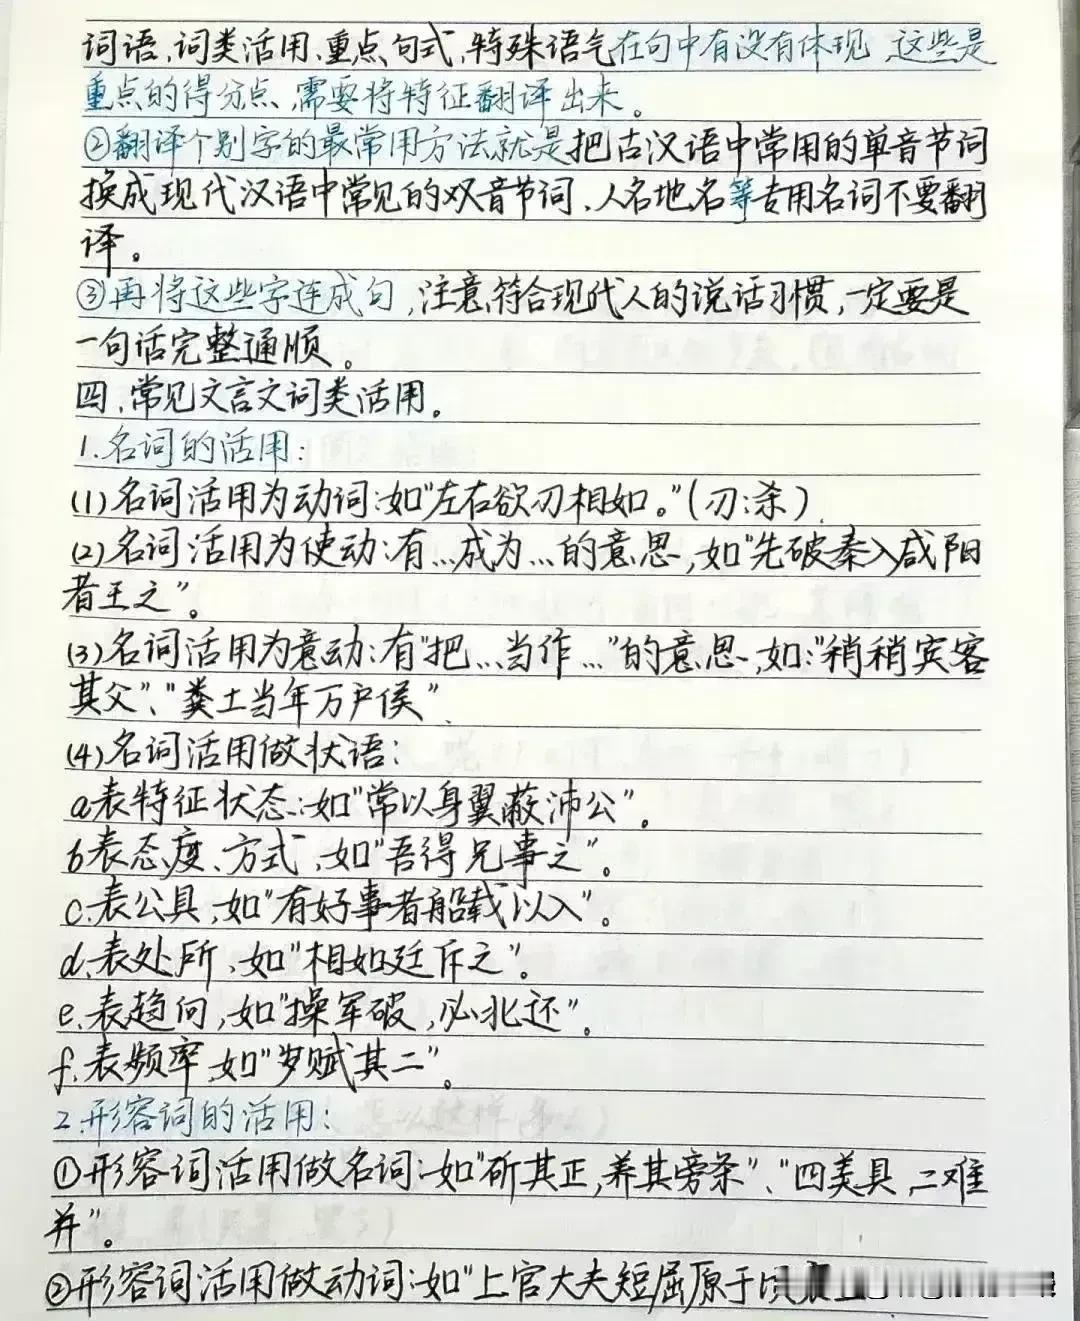 词语、词类活用、重点句式、特殊语气在句中有没有体现,这些是
重点的得分点,需要将特征翻译出来。
②翻译个别字的最常用方法就是把古汉语中常用的单音节词
换成现代汉语中常见的双音节词、人名地名等专用名词不要翻
译。
③再将这些字连成句,注意符合现代人的说话习惯,一定要是
一句话完整通顺。
四、常见文言文词类活用。
1.名词的活用:
(1)名词活用为动词:如"左右欲刃相如。"(刃:杀)
(2)名词活用为使动:有…成为…的意思,如"先破秦入咸阳
者王之"。
(3)名词活用为意动:有"把…当作…"的意思,如:"稍稍宾客
其父"、"粪土当年万户侯"
(4)名词活用做状语:
a表特征状态:如"常以身翼蔽沛公"。
b表态度、方式,如"吾得兄事之"。
c.表公具,如"有好事者船载以入"。
d.表处所,如"相如廷斥之"。
e.表趋向,如"操军破,必北还"。
f.表频率,如"岁赋其二"。
2.形容词的活用:
①形容词活用做名词:如"斫其正,养其旁条"、"四美具,二难
并"。
②形容词活用做动词:如"上官大夫短屈原于顷襄王